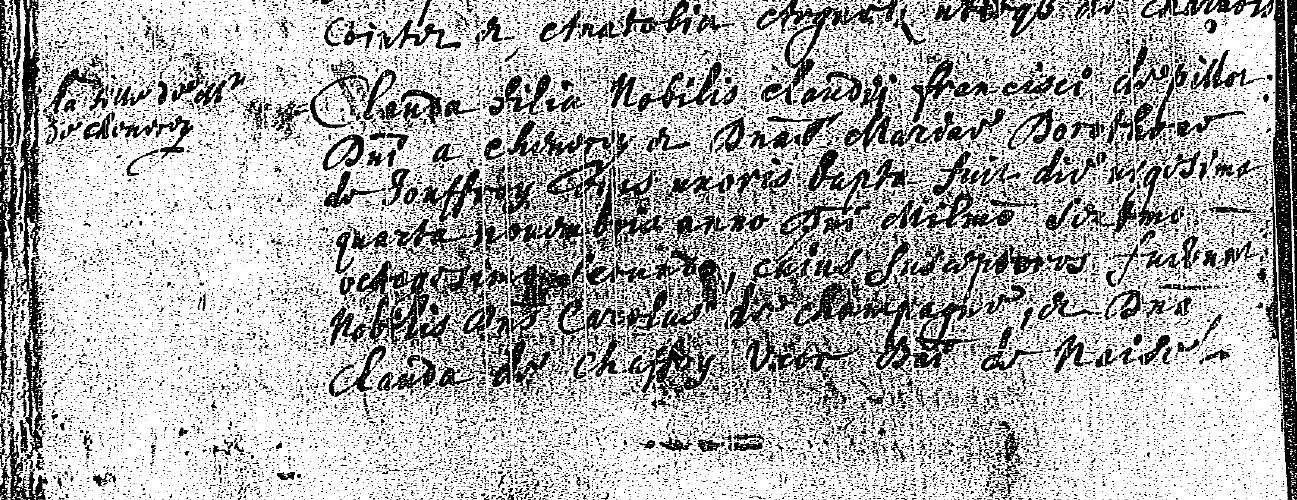 Cointet et Anatolia
la fille de Mr
de chenecey
Clauda filia Nobilis claudij francisci de pillot
Dni a chenecey et Dnae Margae Dorotheae
de Jouffroy Eius uxoris bapta fuit die uigesima
quarta nouembris anno Dni Millmo sexmo
octogesimo secundo, cuius susceptores fuerunt
Nobilis Dns Carolus de champagne, et Dna
Clauda de Chaffoy Uxor Dni de Naise